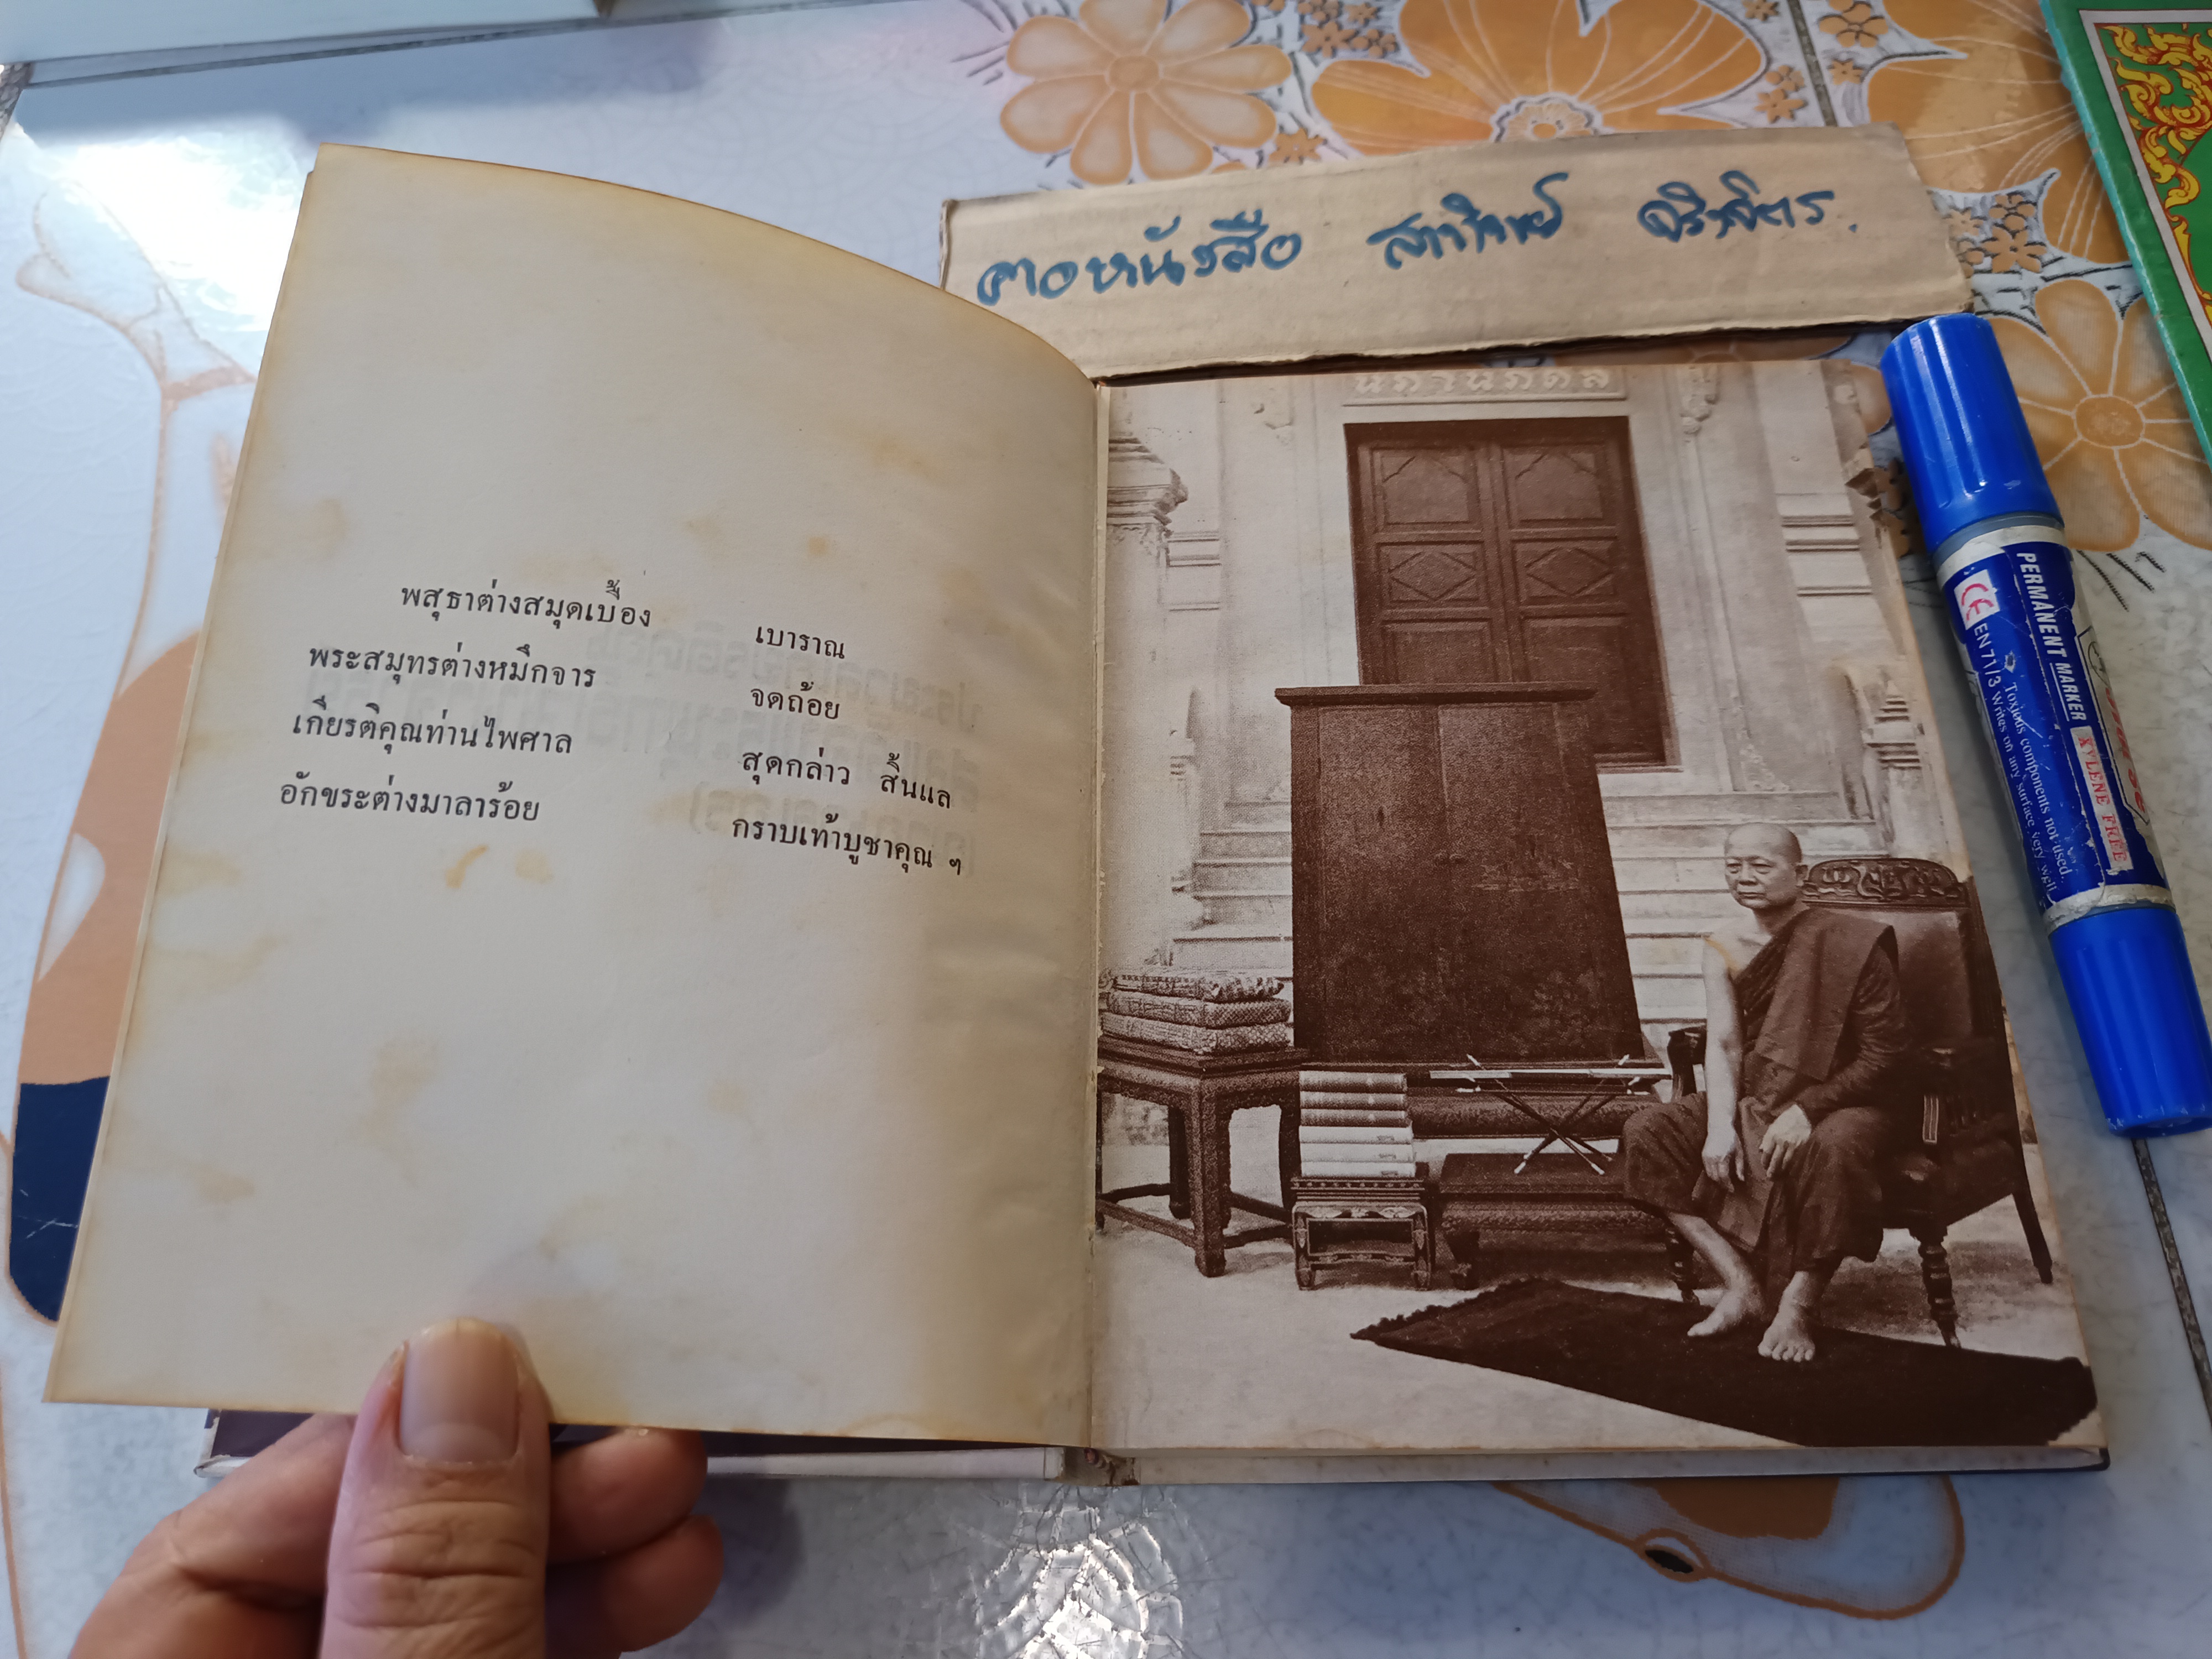 คอหนังสือ สาทิพย์ จริงจิตร.
พสุธาต่างสมุดเบื้อง เบาราณ
พระสมุทรต่างหมึกจาร จดถ้อย
เกียรติคุณท่านไพศาล สุดกล่าว สิ้นแล
อักขระต่างมาลาร้อย กราบเท้าบูชาคุณ ๆ
นภานภดล
PERMANENT MARKER
XYLENE FREE
CE EN71/3 Writes on any surface very well
Toxious components not used.